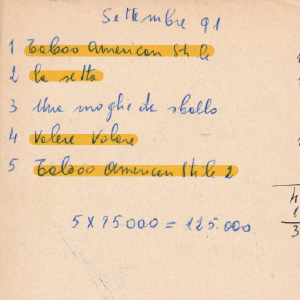 Settembre 91
1 Taboo American Style
2 la setta
3 Una moglie da sballo
4 Volere Volare
5 Taboo American Style 2
5 X 25.000 = 125.000